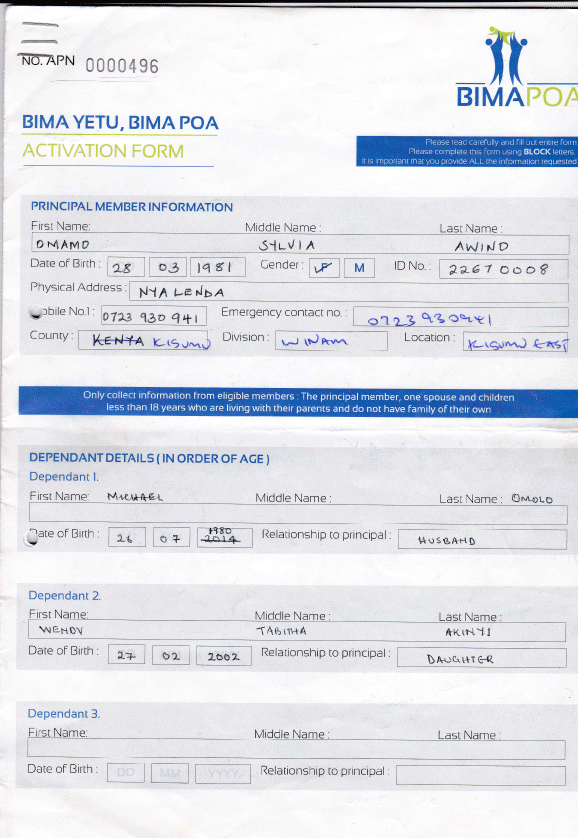 NO. APN 0000496
BIMAPOA
BIMA YETU, BIMA POA
ACTIVATION FORM
Please read carefully and fill out entire form
Please complete this form using BLOCK letters.
It is important that you provide ALL the information requested
PRINCIPAL MEMBER INFORMATION
First Name: Middle Name : Last Name :
OMAMO SYLVIA AWINO
Date of Birth : 28 03 1981 Gender : F M ID No. : 22670008
Physical Address : NYALENDA
Mobile No.1 : 0723 930 941 Emergency contact no. : 0723930941
County : KENYA KISUMU Division : WINAM Location : KISUMU EAST
Only collect information from eligible members : The principal member, one spouse and children
less than 18 years who are living with their parents and do not have family of their own
DEPENDANT DETAILS ( IN ORDER OF AGE )
Dependant 1.
First Name: MICHAEL Middle Name : Last Name : OMOLO
Date of Birth : 26 07 1980 2014 Relationship to principal : HUSBAND
Dependant 2.
First Name: Middle Name : Last Name :
WENDY TABITHA AKINYI
Date of Birth : 27 02 2002 Relationship to principal : DAUGHTER
Dependant 3.
First Name: Middle Name : Last Name :
Date of Birth : DD MM YYYY Relationship to principal :